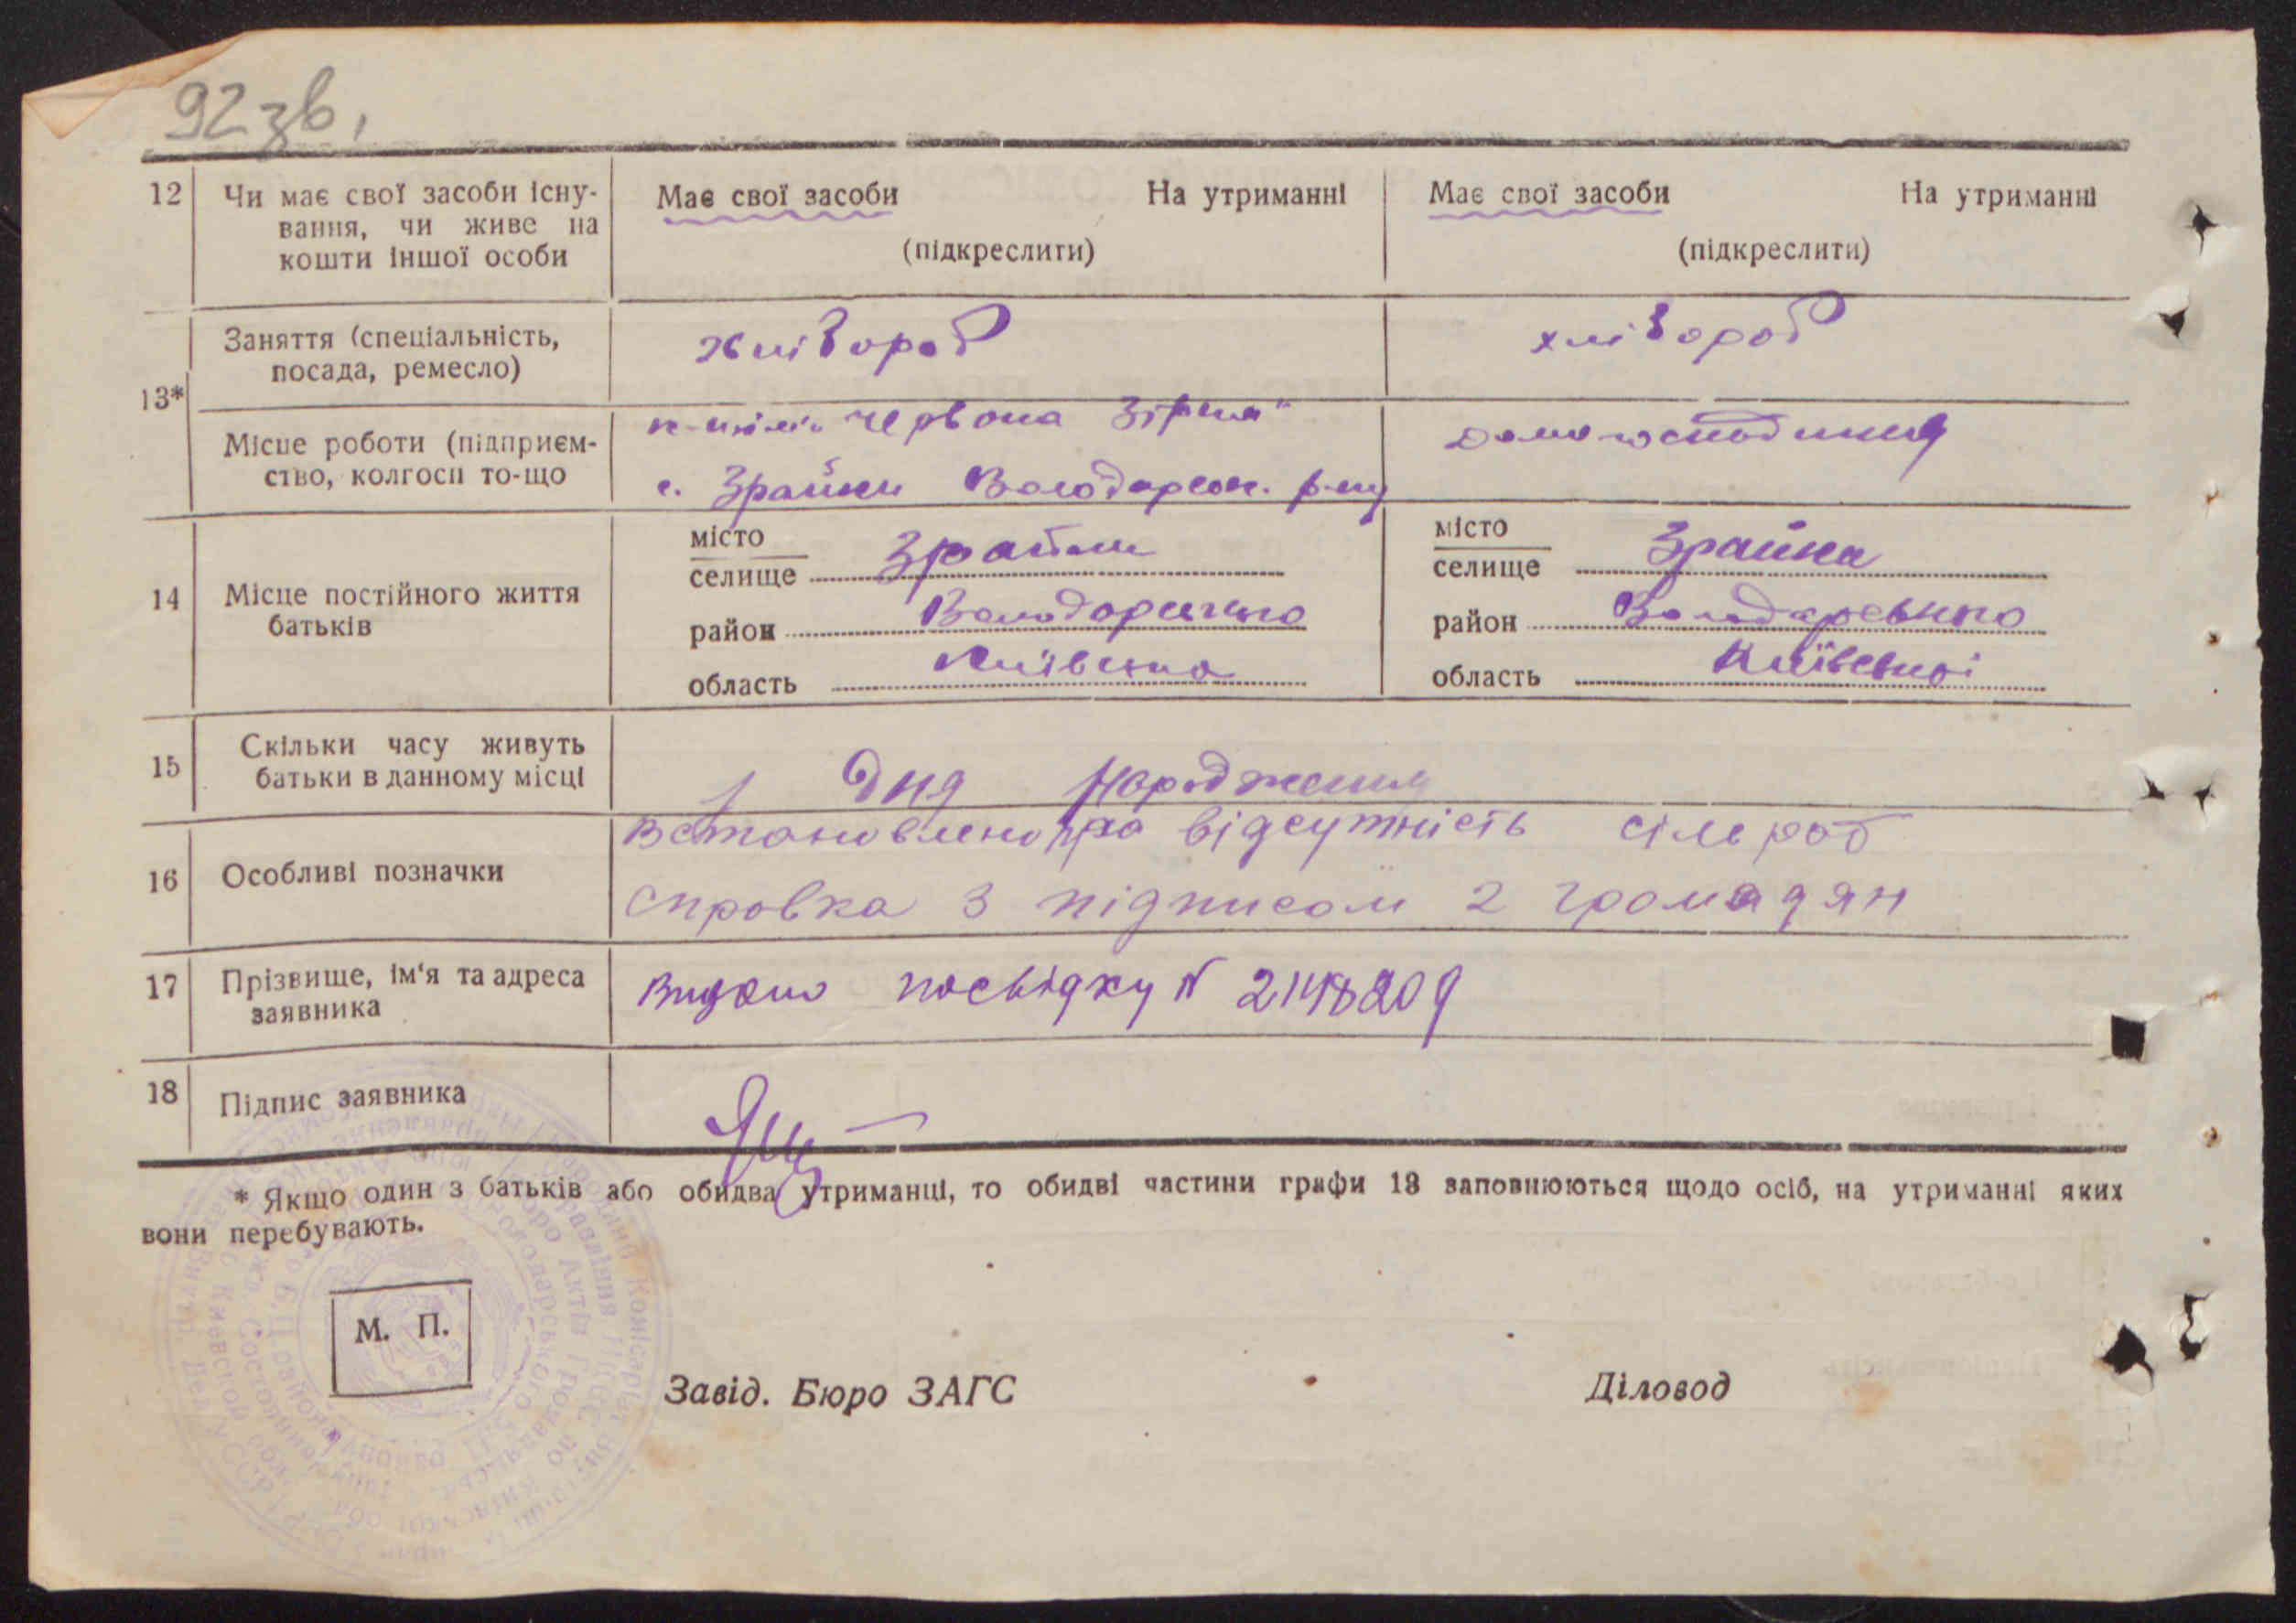 92 зв.
12 Чи має свої засоби існу- Має свої засоби На утриманні Має свої засоби На утриманні
вання, чи живе на
кошти іншої особи (підкреслити) (підкреслити)
Заняття (спеціальність, хлібороб хлібороб
посада, ремесло)
13*
Місце роботи (підприєм- червона Зірка" домогосподиня
ство, колгосп то-що с. Зрайки Володарськ. р-ну
14 Місце постійного життя батьків
місто Зрайки місто Зрайка
селище селище
район Володарського район Володарського
область Київська область Київської
15 Скільки часу живуть
батьки в данному місці з дня народження
16 Особливі позначки
встановлено про відсутність сільраб
справка з підписом 2 громадян
17 Прізвище, ім'я та адреса
заявника Видано посвідку №
18 Підпис заявника
* Якщо один з батьків або обидва утриманці, то обидві частини графи 13 заповнюються щодо осіб, на утриманні яких
вони перебувають.
М. П.
Завід. Бюро ЗАГС Діловод